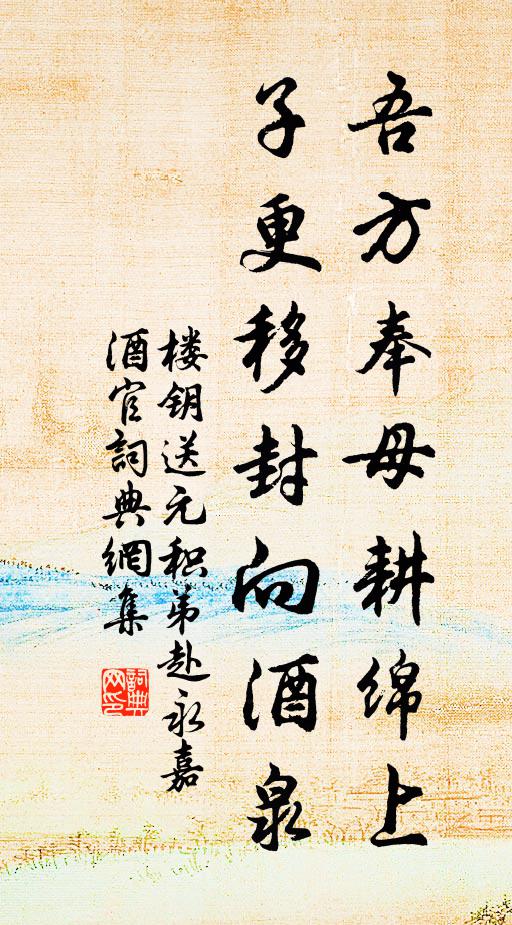 吾方奉母耕绵上
子更移封向酒泉
楼钥送元积弟赴永嘉
酒官詞典網集
詞典网印